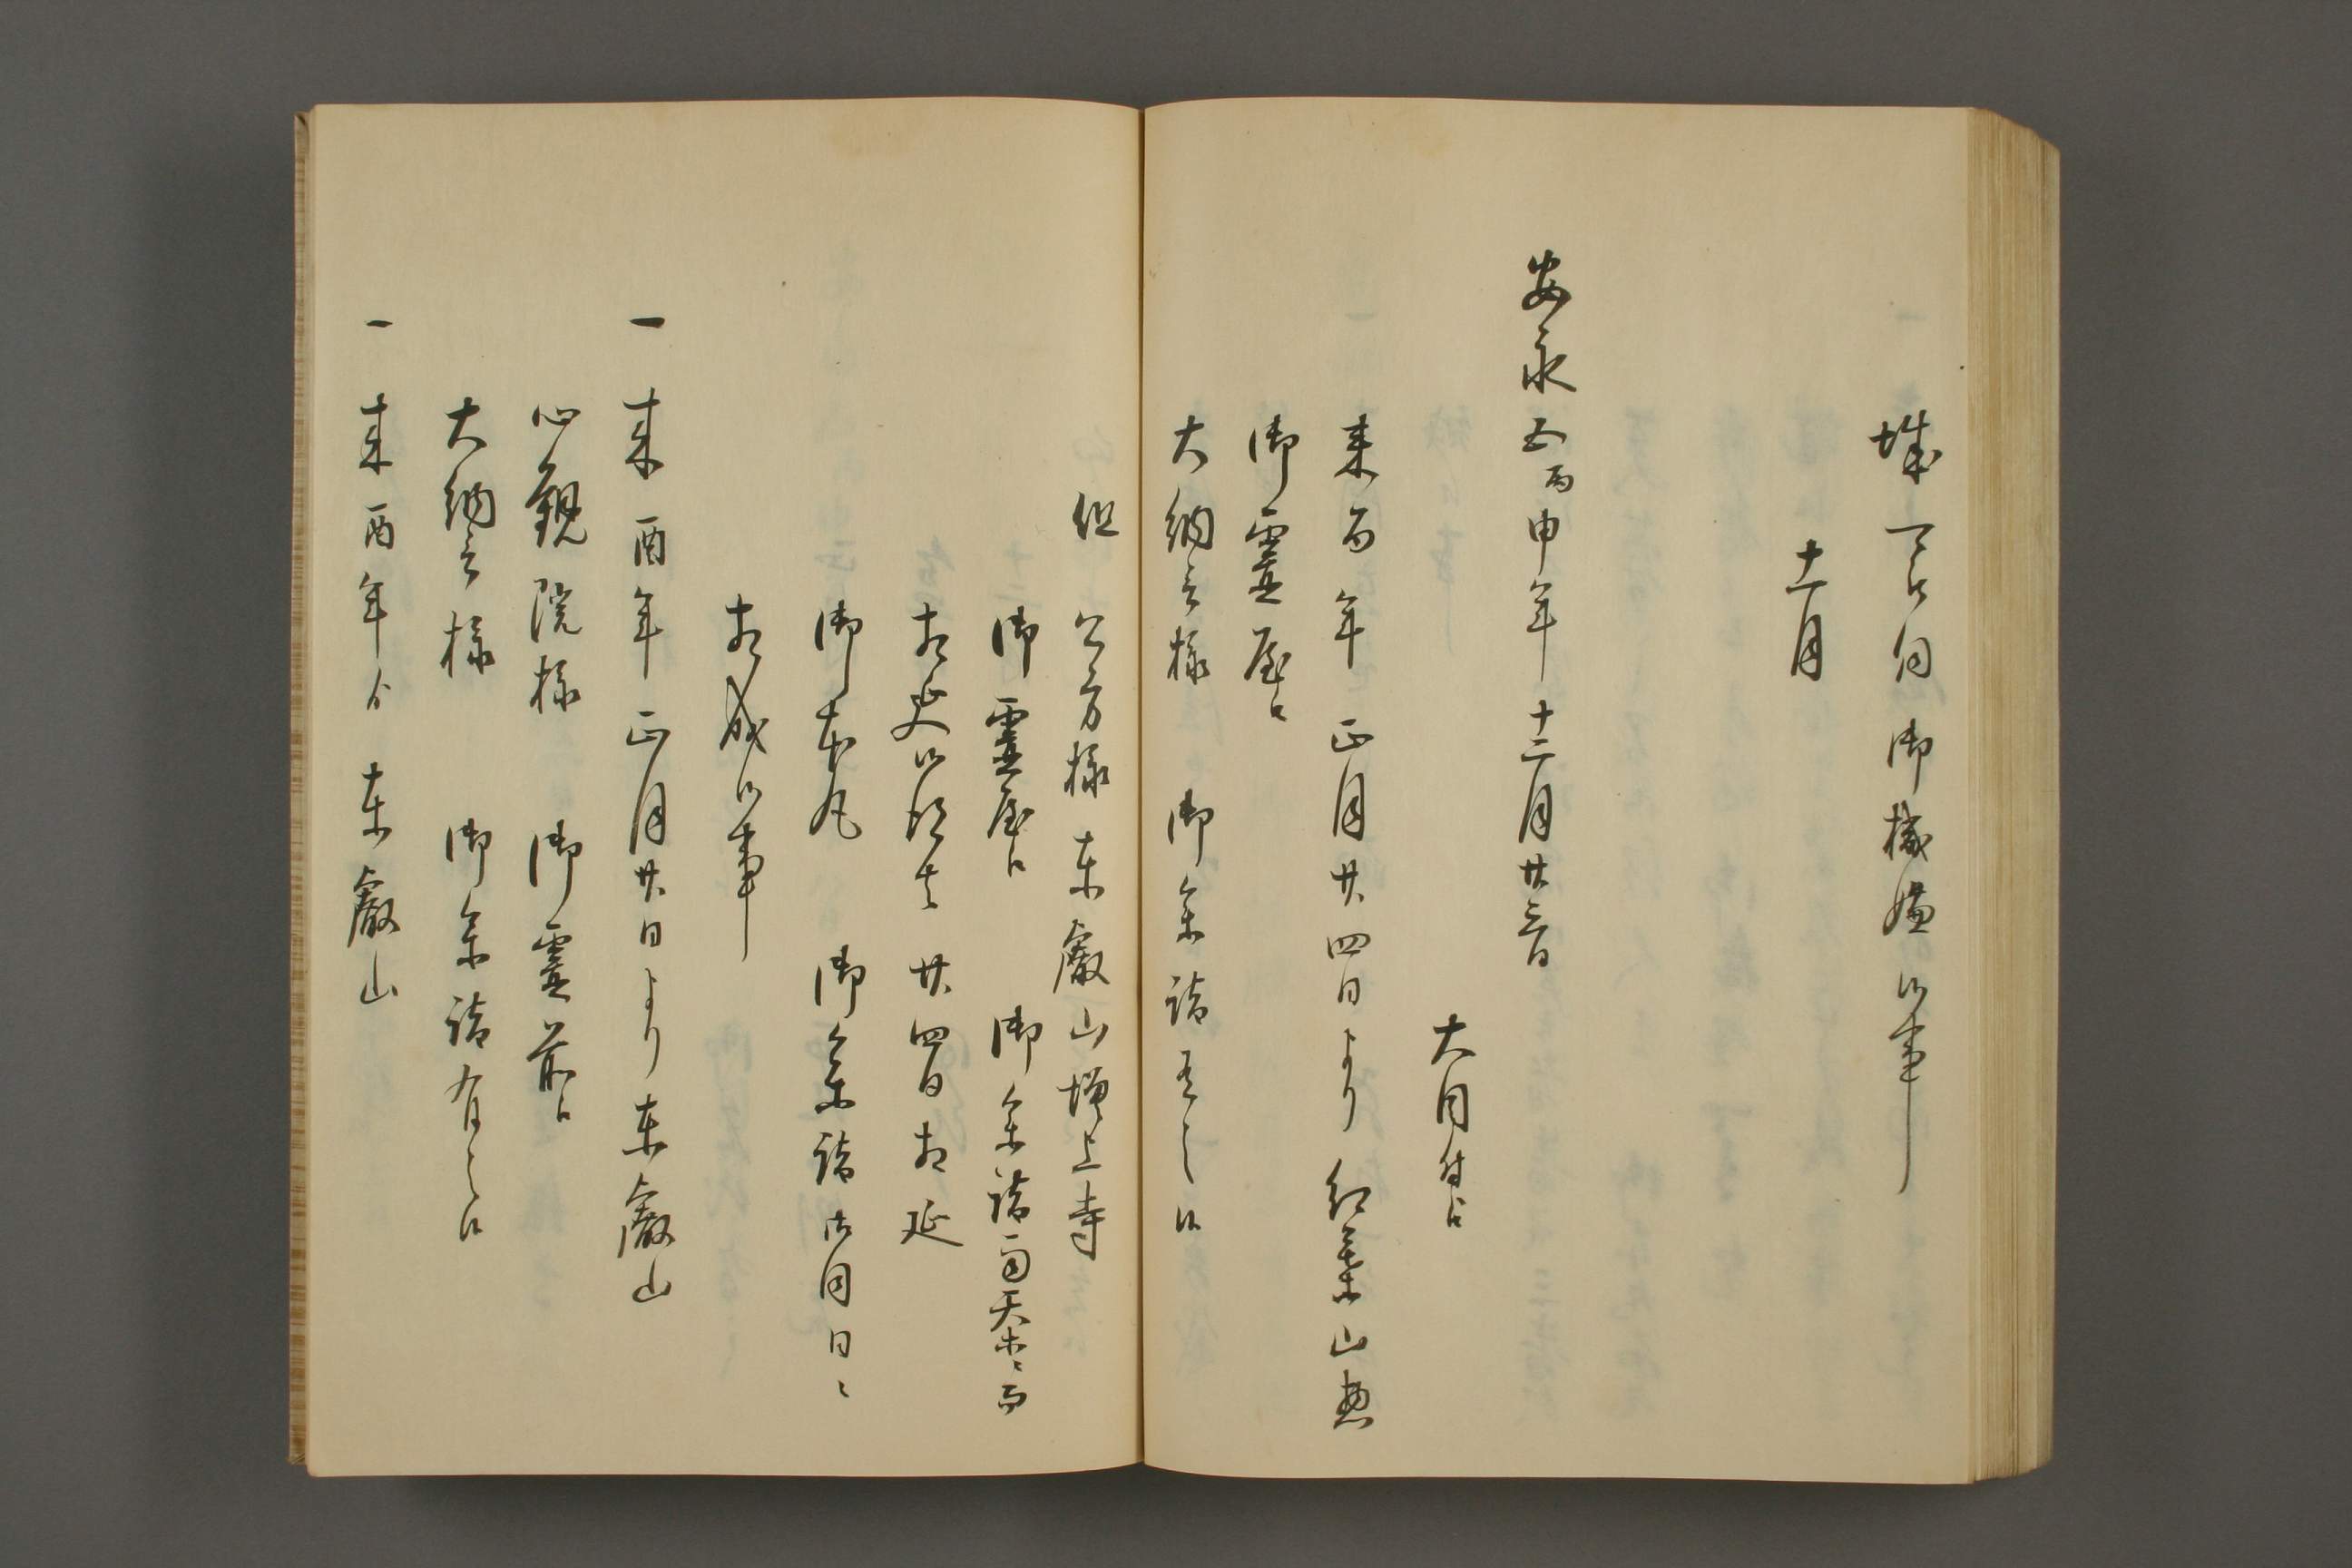 城可被伺御機嫌候事
十一月
安永五丙申年十二月廿三日
大目付江
来酉年正月廿四日より紅葉山惣
御霊屋江
大納言様御参詣有之候
但公方様東叡山増上寺
御霊屋江御参詣雨天等ニ而
相延候得者廿四日相延
御本丸御参詣御同日ニ
相成候事
一来酉年正月廿日より東叡山
心観院様御霊前江
大納言様御参詣有之候
一来酉年ゟ東叡山